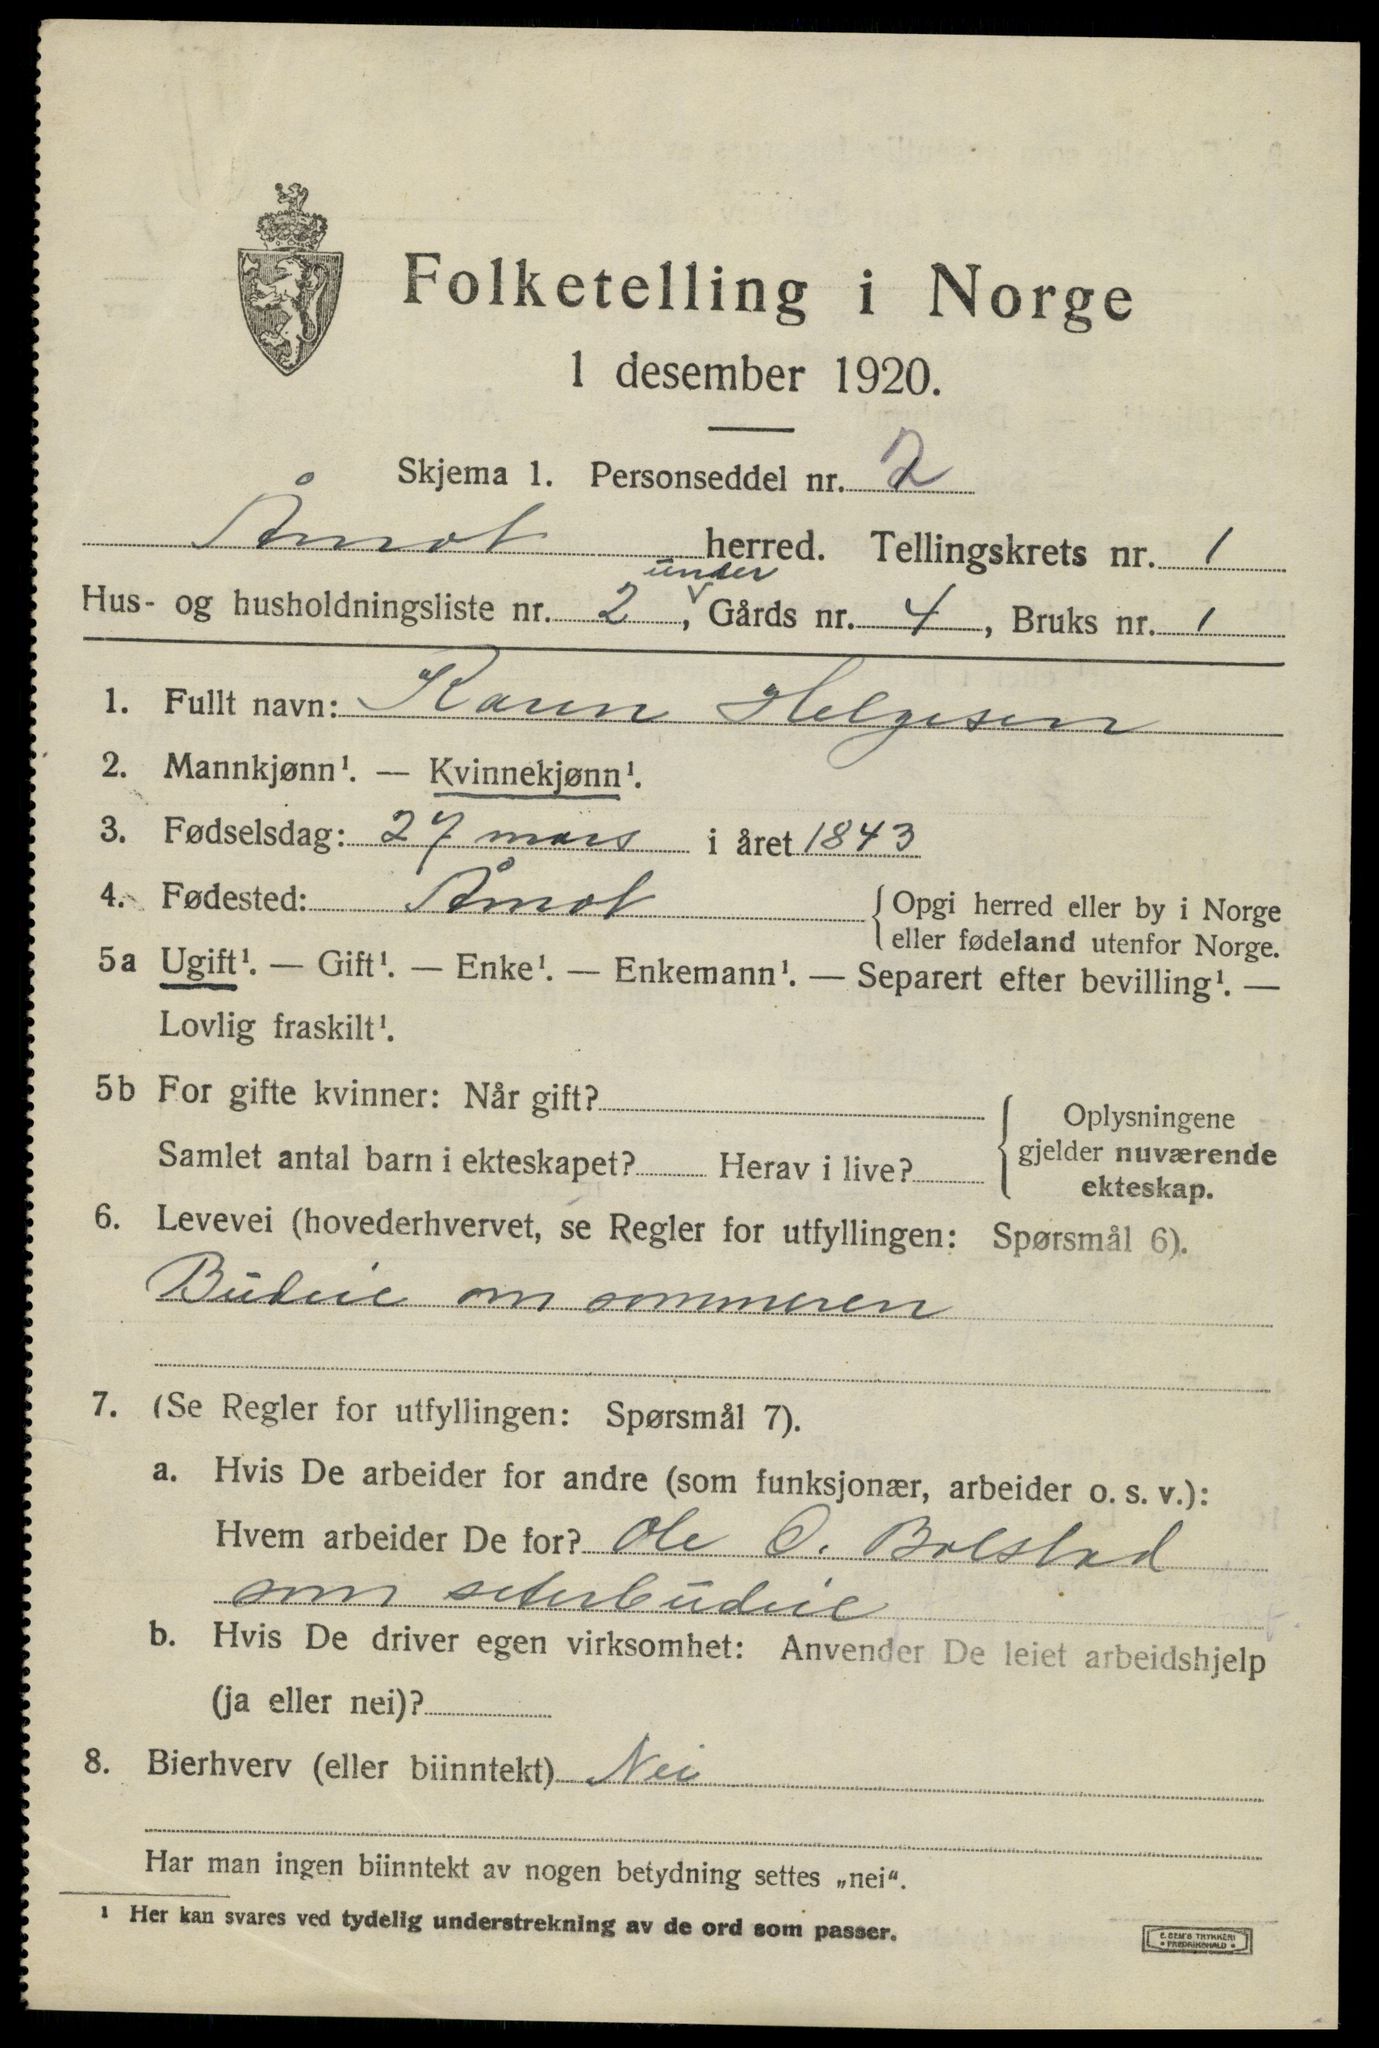 Folketelling i Norge
1 desember 1920.
Skjema 1. Personseddel nr. 2
Åmot herred. Tellingskrets nr. 1
under
Hus- og husholdningsliste nr. 2, Gårds nr. 4, Bruks nr. 1
1. Fullt navn: Karen Helgesen
2. Mannkjønn¹. — Kvinnekjønn¹.
3. Fødselsdag: 27 mars i året 1843
4. Fødested: Åmot {Opgi herred eller by i Norge
eller fødeland utenfor Norge.
5a Ugift¹. — Gift¹. — Enke¹. — Enkemann¹. — Separert efter bevilling¹. —
Lovlig fraskilt¹.
5b For gifte kvinner: Når gift?
Samlet antal barn i ekteskapet? Herav i live?
{Oplysningene
gjelder nuværende
ekteskap.
6. Levevei (hovederhvervet, se Regler for utfyllingen: Spørsmål 6).
Budeie om sommeren
7. (Se Regler for utfyllingen: Spørsmål 7).
a. Hvis De arbeider for andre (som funksjonær, arbeider o. s. v.):
Hvem arbeider De for? Ole O. Bolstad
som seterbudeie
b. Hvis De driver egen virksomhet: Anvender De leiet arbeidshjelp
(ja eller nei)?
8. Bierhverv (eller biinntekt) Nei
Har man ingen biinntekt av nogen betydning settes „nei“.
¹ Her kan svares ved tydelig understrekning av de ord som passer.
E. SEM'S TRYKKERI
FREDRIKSHALD